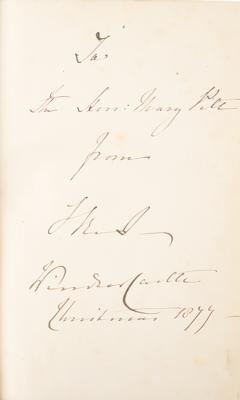 To
The Hon: Mary Pitt
from
Windsor Castle
Christmas 1877